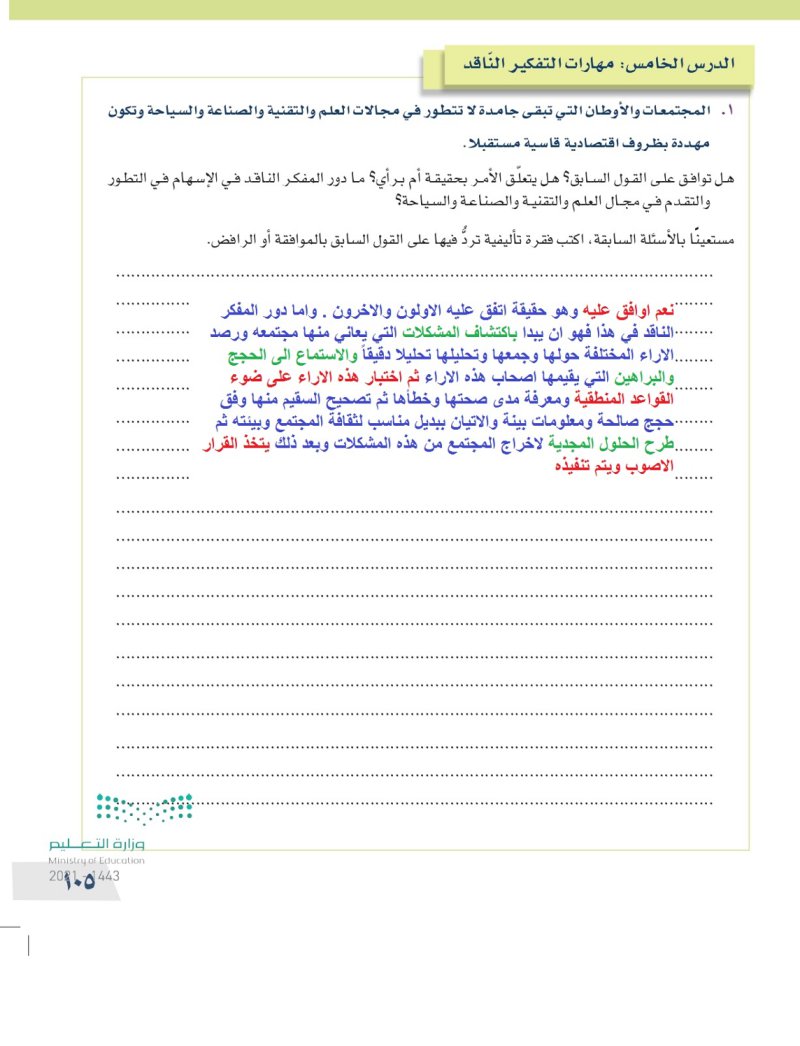 الدرس الخامس: مهارات التفكير النّاقد
١. المجتمعات والأوطان التي تبقى جامدة لا تتطور في مجالات العلم والتقنية والصناعة والسياحة وتكون
مهددة بظروف اقتصادية قاسية مستقبلا.
هل توافق على القول السابق؟ هل يتعلّق الأمر بحقيقة أم برأي؟ ما دور المفكر الناقد في الإسهام في التطور
والتقدم في مجال العلم والتقنية والصناعة والسياحة؟
مستعينًا بالأسئلة السابقة، اكتب فقرة تأليفية تردُّ فيها على القول السابق بالموافقة أو الرافض.
نعم اوافق عليه وهو حقيقة اتفق عليه الاولون والاخرون . واما دور المفكر
الناقد في هذا فهو ان يبدا باكتشاف المشكلات التي يعاني منها مجتمعه ورصد
الاراء المختلفة حولها وجمعها وتحليلها تحليلا دقيقاً والاستماع الى الحجج
والبراهين التي يقيمها اصحاب هذه الاراء ثم اختبار هذه الاراء على ضوء
القواعد المنطقية ومعرفة مدى صحتها وخطأها ثم تصحيح السقيم منها وفق
حجج صالحة ومعلومات بينة والاتيان ببديل مناسب لثقافة المجتمع وبيئته ثم
طرح الحلول المجدية لاخراج المجتمع من هذه المشكلات وبعد ذلك يتخذ القرار
الاصوب ويتم تنفيذه
وزارة التعليم
Ministry of Education
2021 - 1443
١٠٥